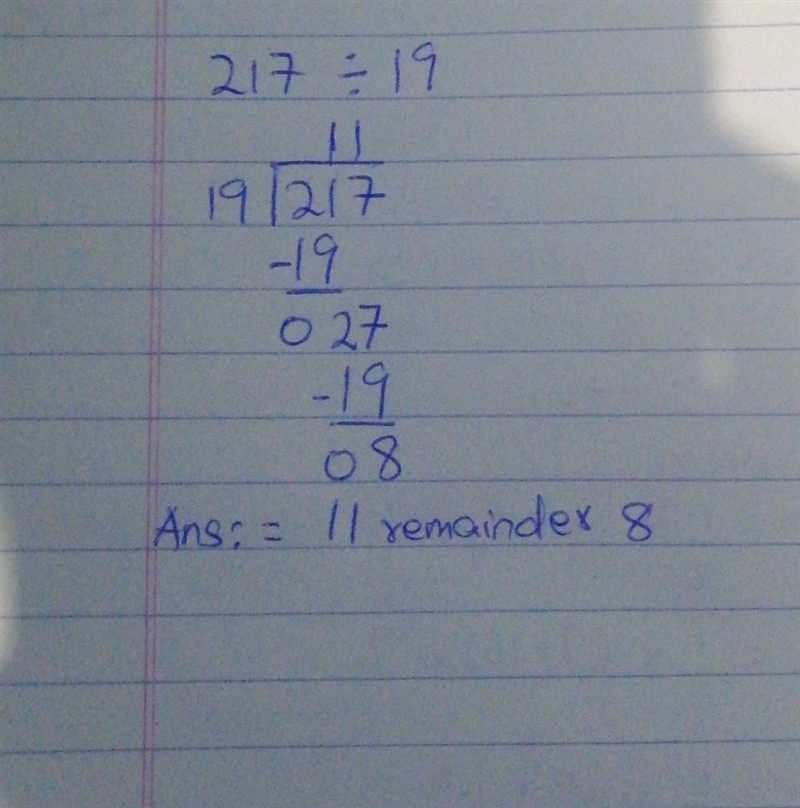 217 ÷ 19
11
19 217
-19
027
-19
08
Ans: = 11 remainder 8